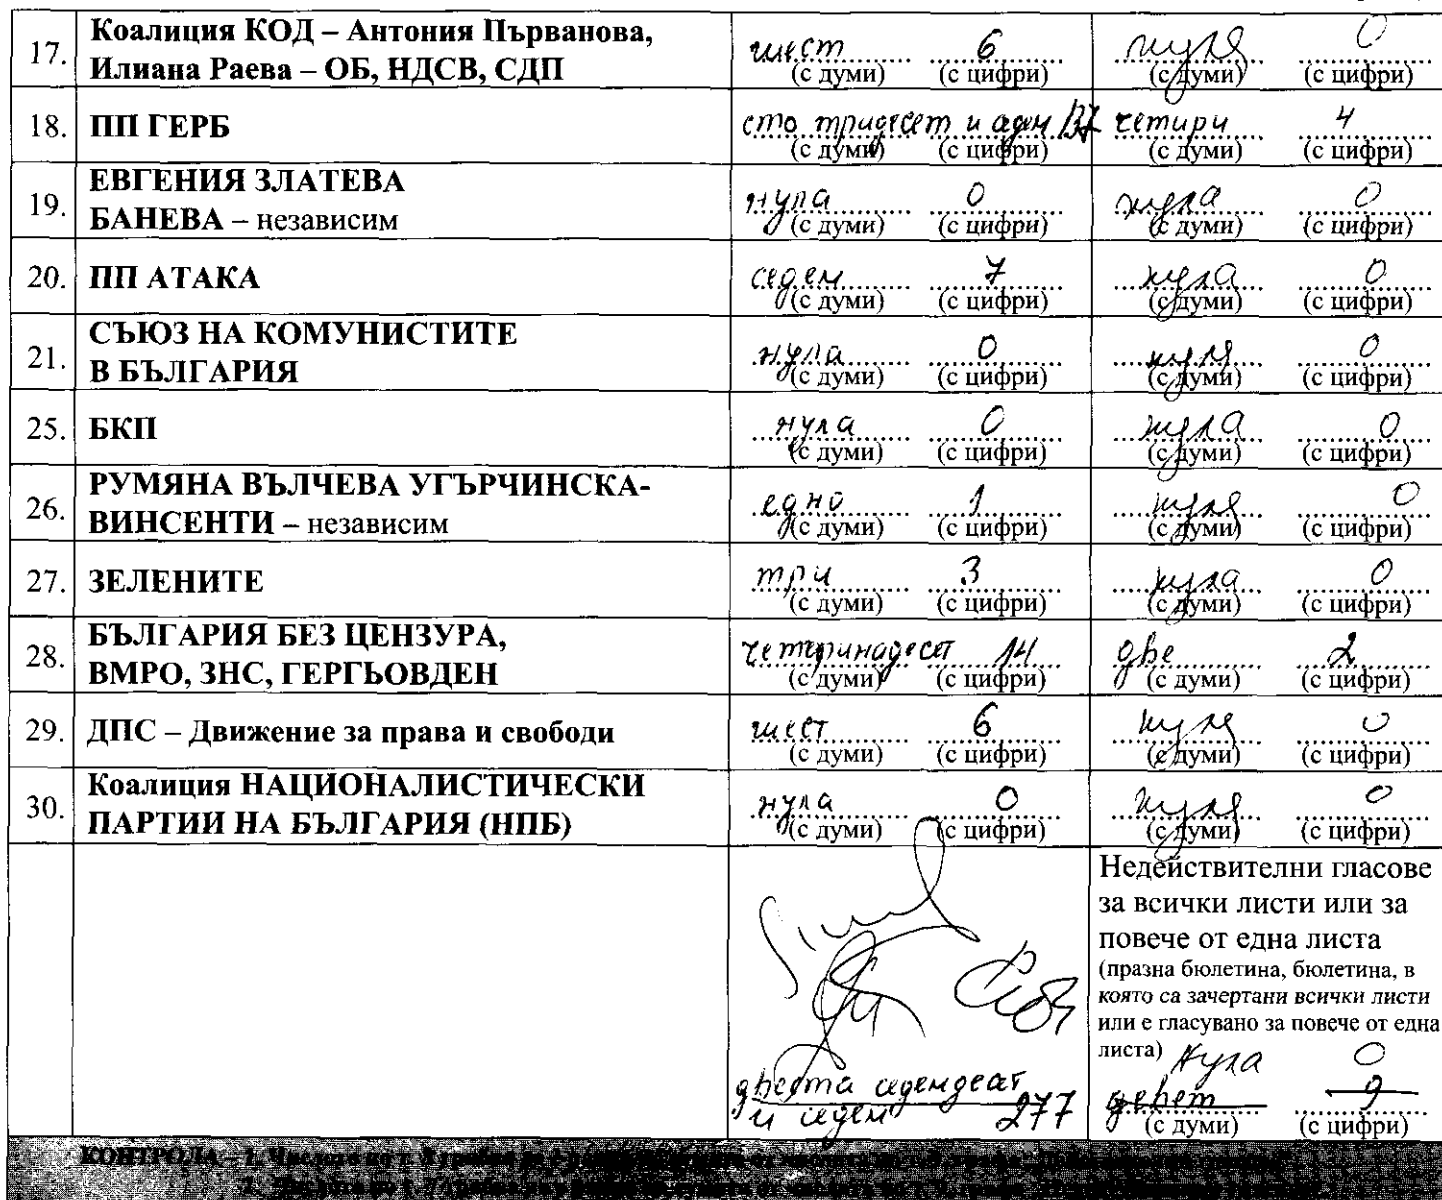 17. Коалиция КОД – Антония Първанова,
Илиана Раева – ОБ, НДСВ, СДП
шест 6 нула 0
(с думи) (с цифри) (с думи) (с цифри)
18. ПП ГЕРБ
сто тридесет и 137 четири 4
(с думи) (с цифри) (с думи) (с цифри)
19. ЕВГЕНИЯ ЗЛАТЕВА
БАНЕВА – независим
нула 0 нула 0
(с думи) (с цифри) (с думи) (с цифри)
20. ПП АТАКА
седем 7 нула 0
(с думи) (с цифри) (с думи) (с цифри)
21. СЪЮЗ НА КОМУНИСТИТЕ
В БЪЛГАРИЯ
нула 0 нула 0
(с думи) (с цифри) (с думи) (с цифри)
25. БКП
нула 0 нула 0
(с думи) (с цифри) (с думи) (с цифри)
26. РУМЯНА ВЪЛЧЕВА УГЪРЧИНСКА-
ВИНСЕНТИ – независим
едно 1 нула 0
(с думи) (с цифри) (с думи) (с цифри)
27. ЗЕЛЕНИТЕ
три 3 нула 0
(с думи) (с цифри) (с думи) (с цифри)
28. БЪЛГАРИЯ БЕЗ ЦЕНЗУРА,
ВМРО, ЗНС, ГЕРГЬОВДЕН
четиринадесет 14 две 2
(с думи) (с цифри) (с думи) (с цифри)
29. ДПС – Движение за права и свободи
шест 6 нула 0
(с думи) (с цифри) (с думи) (с цифри)
30. Коалиция НАЦИОНАЛИСТИЧЕСКИ
ПАРТИИ НА БЪЛГАРИЯ (НПБ)
нула 0 нула 0
(с думи) (с цифри) (с думи) (с цифри)
двеста седемдесет
и седем 277
Недействителни гласове
за всички листи или за
повече от една листа
(празна бюлетина, бюлетина, в
която са зачертани всички листи
или е гласувано за повече от една
листа) нула 0
девет 9
(с думи) (с цифри)
КОНТРОЛА – 1.